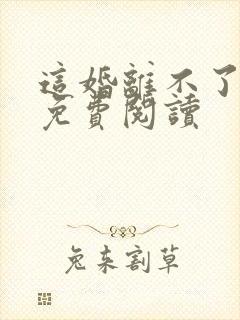 這婚離不了
免費閱讀
兔來割草